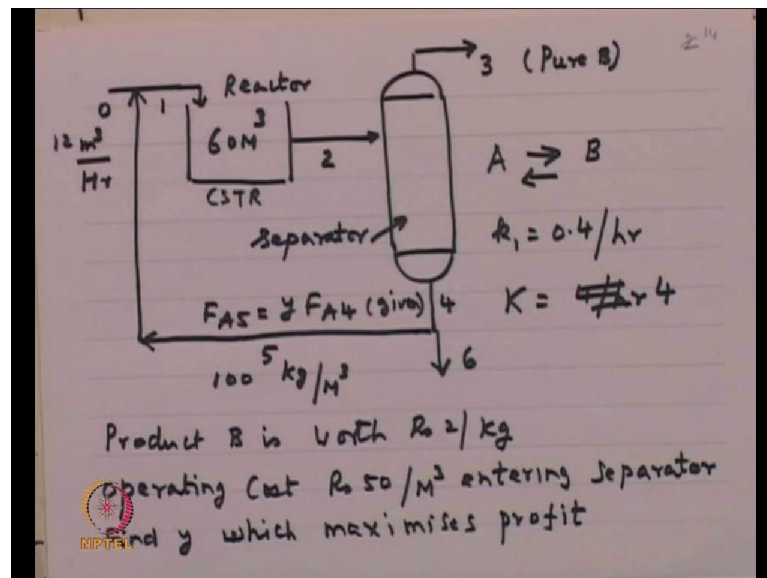 3 (Pure B)
2 14
0 1 Reactor
12 m³
Hr
60M³
CSTR
2
A ⇌ B
separator
k₁ = 0.4/hr
FA5 = y FA4 (given) 4
K = 4
5
100 kg/M³
6
Product B is worth Rs 2/kg
operating Cost Rs 50/M³ entering separator
Find y which maximises profit
NPTEL